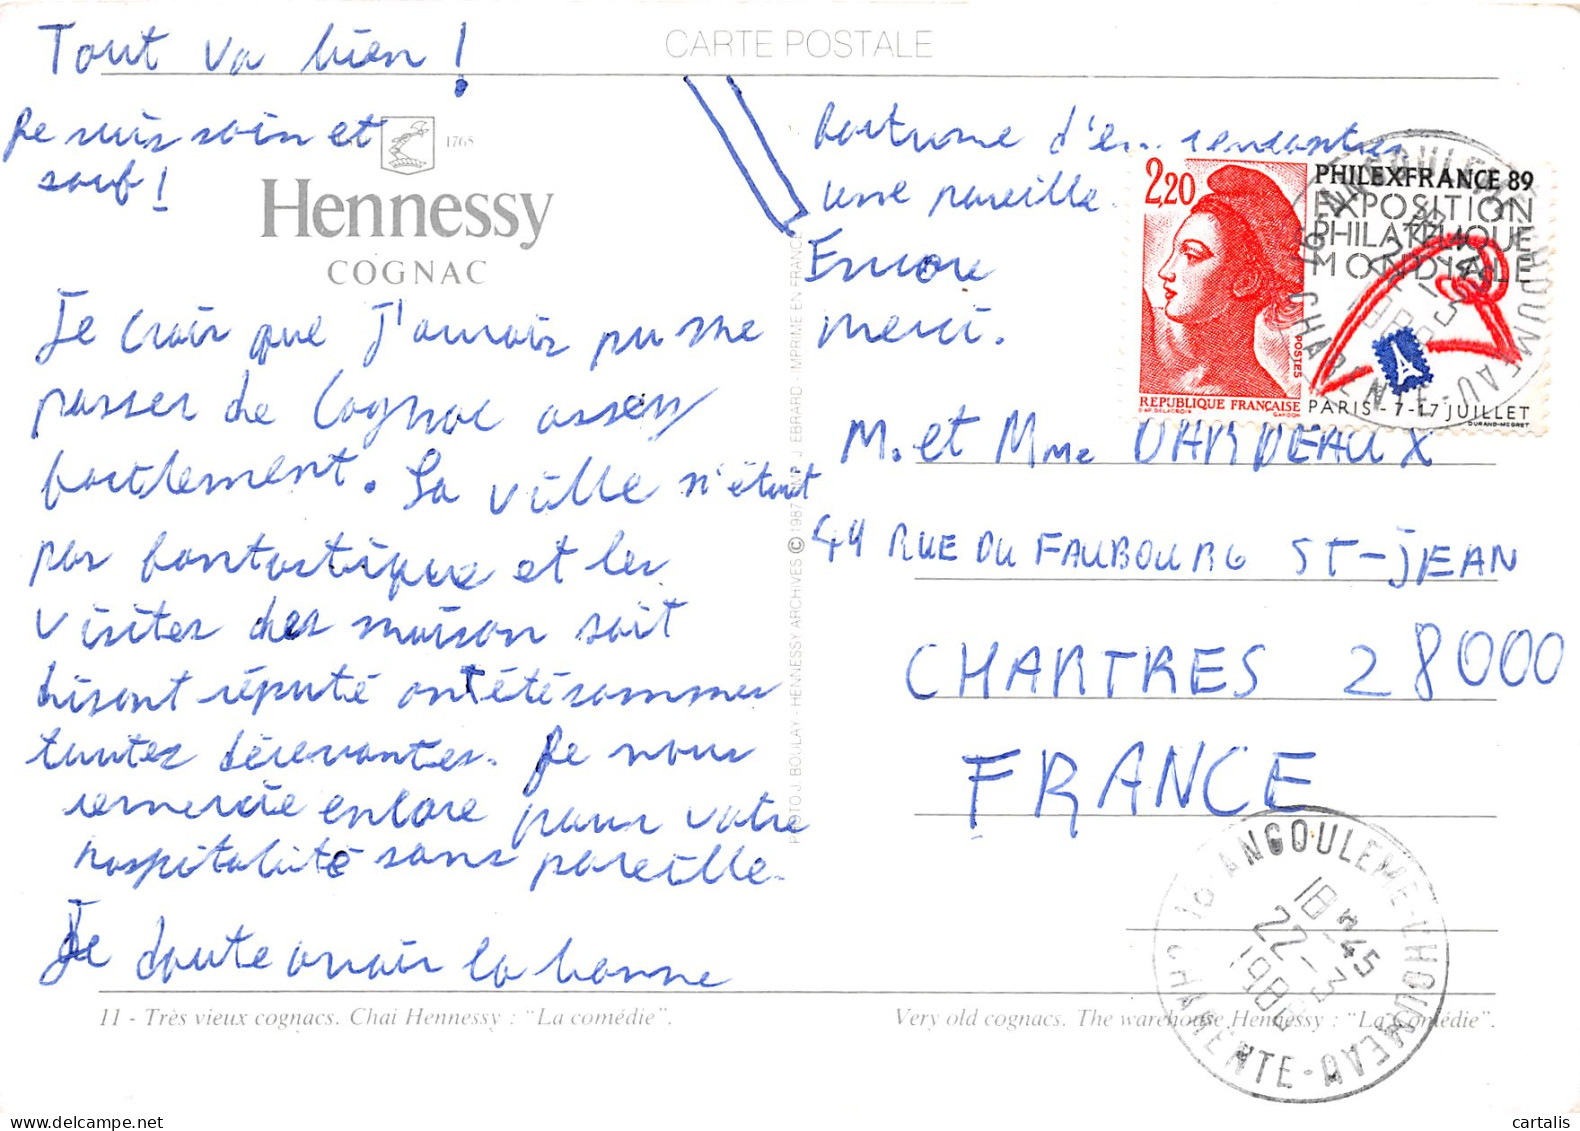 Tout va bien !
CARTE POSTALE
Je suis sain et
sauf !
1765
Hennessy
COGNAC
Je crois que j'aurais pu me
passer de Cognac assez
facilement. La ville n'était
pas fantastique et les
visites des maison soit
disant réputé ont été sommes
toutes décevantes. Je vous
remercie encore pour votre
hospitalité sans pareille.
Je doute avoir la bonne
fortune d'en rencontrer
une pareille.
Encore
merci.
2,20
POSTES
REPUBLIQUE FRANÇAISE
D'AP. DELACROIX GANDON
PHILEXFRANCE 89
EXPOSITION
PHILATÉLIQUE
MONDIALE
PARIS - 7-17 JUILLET
DURAND-MEGRET
M. et Mme DARDEAUX
44 RUE DU FAUBOURG ST-JEAN
CHARTRES 28000
FRANCE
16 ANGOULEME-L'HOUMEAU
18 H 45
22-3
CHARENTE
PHOTO J. BOULAY - HENNESSY ARCHIVES © 1987 J. EBRARD - IMPRIME EN FRANCE
11 - Très vieux cognacs. Chai Hennessy : "La comédie".
Very old cognacs. The warehouse Hennessy : "La Comédie".
cartalis